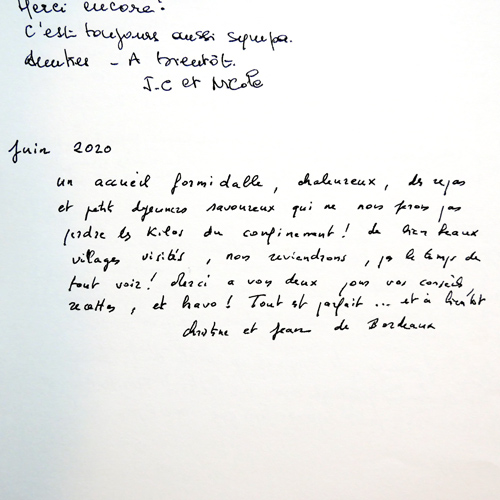 Merci encore!
C'est toujours aussi sympa.
- A bientôt.
J-C et Nicole
Juin 2020
un accueil formidable, chaleureux, des repas
et petit dejeuners savoureux qui ne nous ferons pas
perdre les Kilos du confinement! de bien beaux
villages visités, nous reviendrons, pas le temps de
tout voir! Merci a vous deux pour vos conseils,
recettes, et bravo! Tout est parfait ... et à bientôt
et Jean de Bordeaux